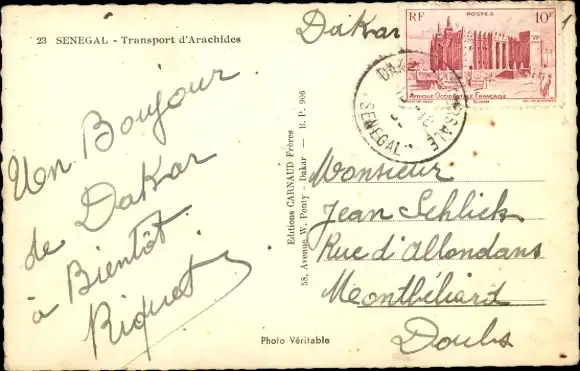 23 SENEGAL - Transport d'Arachides
Un Boujour
de Dakar
à Bientôt
Riquet
Editions CARNAUD Frères
58, Avenue W. Ponty - Dakar — B. P. 906
Photo Véritable
Dakar
RF POSTES 10F
AFRIQUE OCCIDENTALE FRANÇAISE
SENEGAL
Monsieur
Jean Schlick
Rue d'Allondans
Montbéliard
Doubs